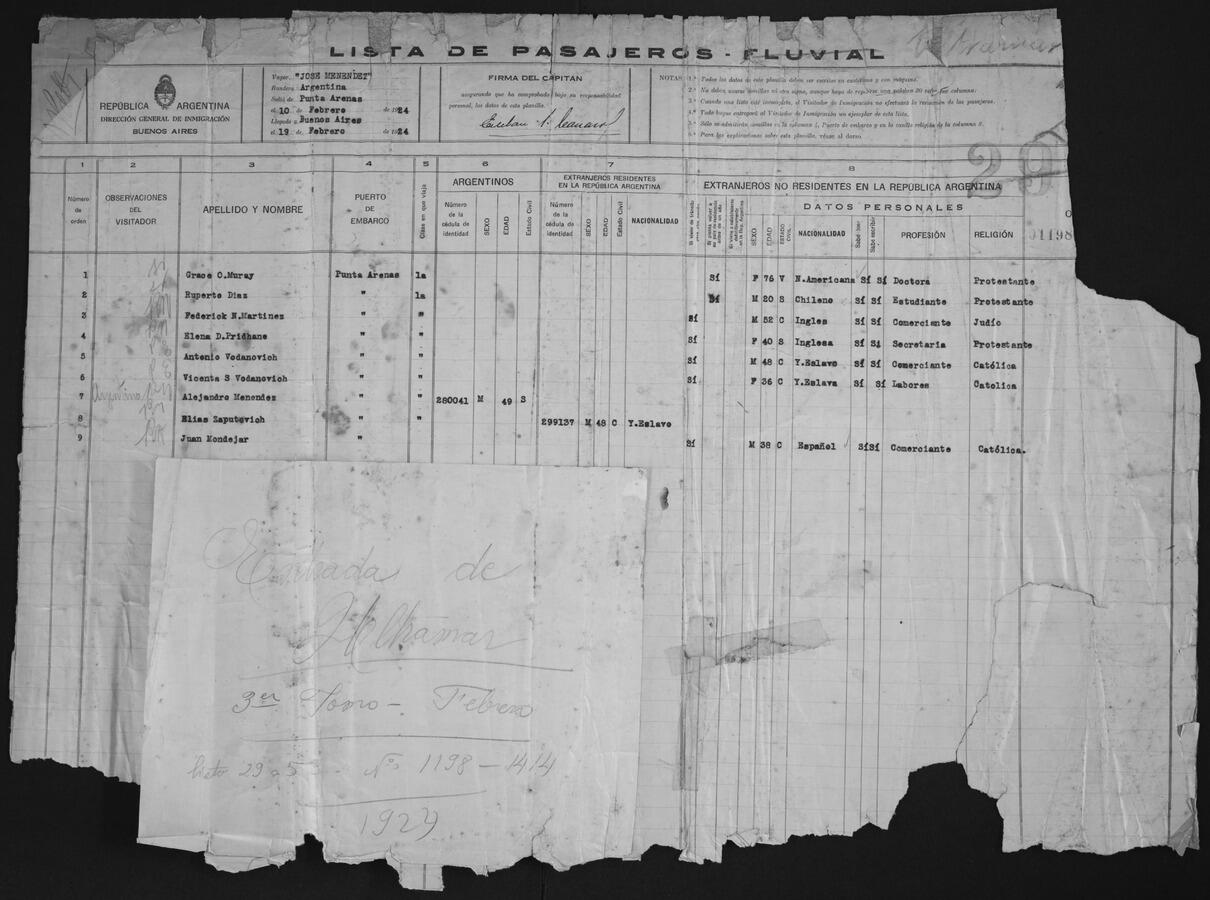 LISTA DE PASAJEROS - FLUVIAL
REPÚBLICA ARGENTINA
DIRECCIÓN GENERAL DE INMIGRACIÓN
BUENOS AIRES
Vapor "JOSE MENENDEZ"
Bandera Argentina
Salió de Punta Arenas
el 10 de Febrero de 1924
Llegado a Buenos Aires
el 19 de Febrero de 1924
FIRMA DEL CAPITAN
asegurando que ha comprobado bajo su responsabilidad
personal, los datos de esta planilla.
Esteban
NOTAS: 1.ª Todos los datos de esta planilla deben ser escritos en castellano y con máquina.
2.ª No deben usarse comillas ni otro signo, aunque haya de repetirse una palabra 20 veces en columna:
3.ª Cuando una lista esté incompleta, el Visitador de Inmigración no efectuará la recepción de los pasajeros.
4.ª Todo buque entregará al Visitador de Inmigración un ejemplar de esta lista.
5.ª Sólo se admitirán comillas en la columna 4, Puerto de embarco y en la casilla religión de la columna 8.
6.ª Para las explicaciones sobre esta planilla, véase al dorso.
29
1 2 3 4 5 6 7 8
Número de orden
OBSERVACIONES DEL VISITADOR
APELLIDO Y NOMBRE
PUERTO DE EMBARCO
Clase en que viaja
ARGENTINOS
Número de la cédula de identidad SEXO EDAD Estado Civil
EXTRANJEROS RESIDENTES EN LA REPÚBLICA ARGENTINA
Número de la cédula de identidad SEXO EDAD Estado Civil NACIONALIDAD
EXTRANJEROS NO RESIDENTES EN LA REPÚBLICA ARGENTINA
DATOS PERSONALES
SEXO EDAD ESTADO CIVIL NACIONALIDAD Sabe leer Sabe escribir PROFESIÓN RELIGIÓN
01198
1 Grace O.Muray Punta Arenas 1a Sí F 76 V N.Americana Sí Sí Doctora Protestante
2 Ruperto Diaz " 1a Sí M 20 S Chileno Sí Sí Estudiante Protestante
3 Federick N.Martinez " " Sí M 52 C Ingles Sí Sí Comerciante Judío
4 Elena D.Pridhane " " Sí F 40 S Inglesa Sí Sí Secretaria Protestante
5 Antonio Vodanovich " " Sí M 48 C Y.Eslavo Sí Sí Comerciante Católica
6 Vicenta S Vodanovich " " Sí F 36 C Y.Eslava Sí Sí Labores Catolica
7 Argentino Alejandro Menendez " " 280041 M 49 S
8 Elias Zaputovich " " 299137 M 48 C Y.Eslavo
9 Juan Mondejar " Sí M 38 C Español Sí Sí Comerciante Católica.
Entrada de
Ultramar
3er Tomo - Febrero
Nos 1198 - 1414
1924